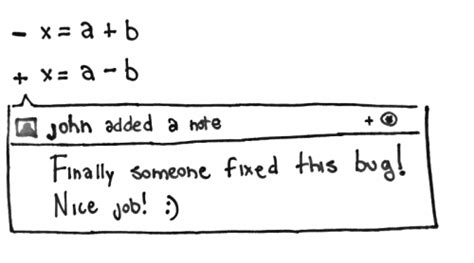 - x = a + b
+ x = a - b
john added a note +
Finally someone fixed this bug!
Nice job! :)